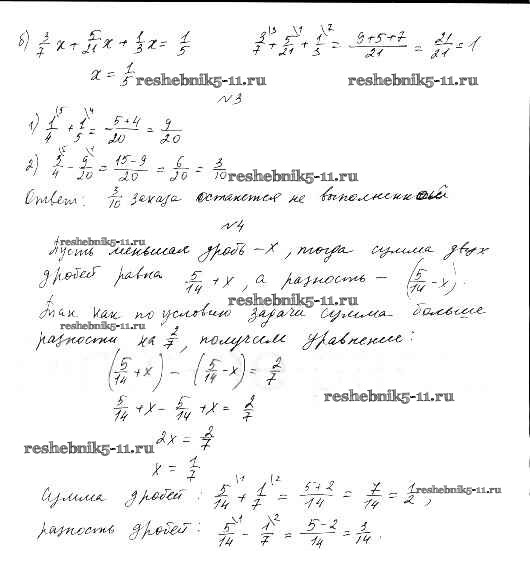 б) 3/7 x + 5/21 x + 1/3 x = 1/5     3/7 + 5/21 + 1/3 = (9+5+7)/21 = 21/21 = 1
x = 1/5
reshebnik5-11.ru reshebnik5-11.ru
№3
1) 1/4 + 1/5 = (5+4)/20 = 9/20
2) 3/4 - 9/20 = (15-9)/20 = 6/20 = 3/10
reshebnik5-11.ru
Ответ: 3/10 заказа останется не выполненной
№4
reshebnik5-11.ru
Пусть меньшая дробь - x, тогда сумма двух
дробей равна 5/14 + x, а разность - (5/14 - x).
reshebnik5-11.ru
Так как по условию задачи сумма больше
reshebnik5-11.ru
разности на 2/7, получим уравнение:
(5/14 + x) - (5/14 - x) = 2/7
5/14 + x - 5/14 + x = 2/7
reshebnik5-11.ru
2x = 2/7
reshebnik5-11.ru
x = 1/7
сумма дробей: 5/14 + 1/7 = (5+2)/14 = 7/14 = 1/2,
reshebnik5-11.ru
разность дробей: 5/14 - 1/7 = (5-2)/14 = 3/14.